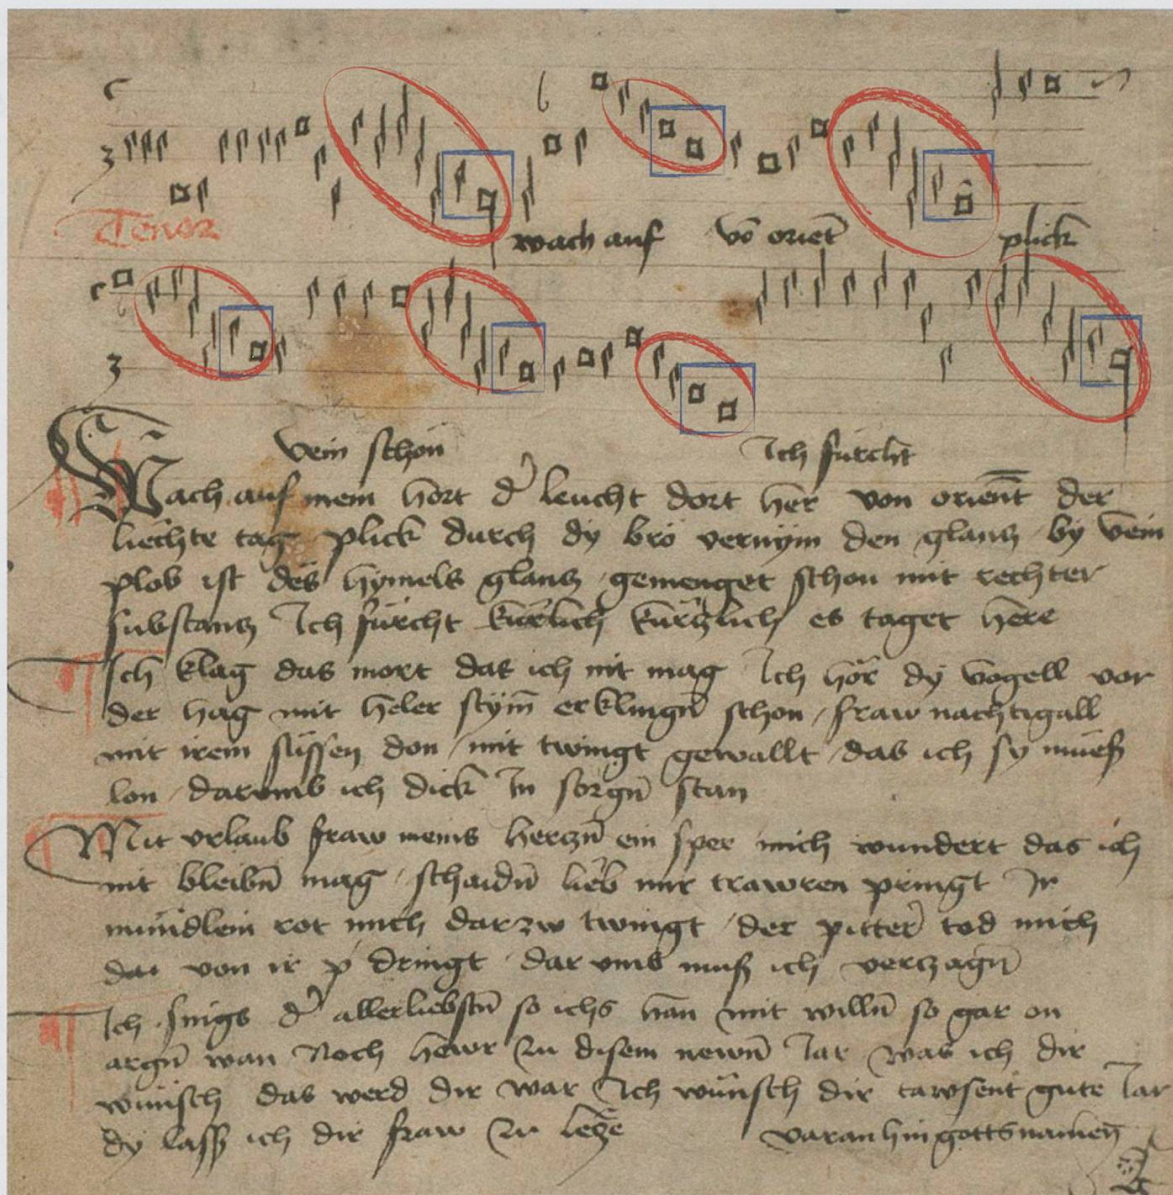 Tenor
wach auf vō oriēt plick
vein schon Ich fürcht
Wach auf mein hort d' leucht dort her von oriēnt der
liechte tag plick durch dy bro vernym den glantz by vein
plob ist des hymels glantz gemenget schon mit rechter
substantz Ich fürcht kürlich kürtzlich es taget here
Ich klag das mort das ich nit mag Ich hör dy vogell vor
der hag mit heler stym̄ erklingn̄ schon fraw nachtigall
mit irem süssen don mit twingt gewallt das ich sy müeß
lon darumb ich dick In sorgn̄ stan
Mit vrlaub fraw meins hertzn̄ ein sper mich wundert das ich
nit bleibn̄ mag schaidn̄ lieb mir trawren pringt Ir
mündlein rot mich darzw twingt der pitter tod mich
von ir dringt dar vmb muß ich vertzagn̄
Ich sings d' allerliebstn̄ so ichs han mit willn̄ so gar on
argn̄ wan Noch hewr zu disem newn̄ Jar was ich dir
wünsch das werd dir war Ich wünsch dir tawsent gute Jar
dy lass ich dir fraw zu letze varan hin gotts namen